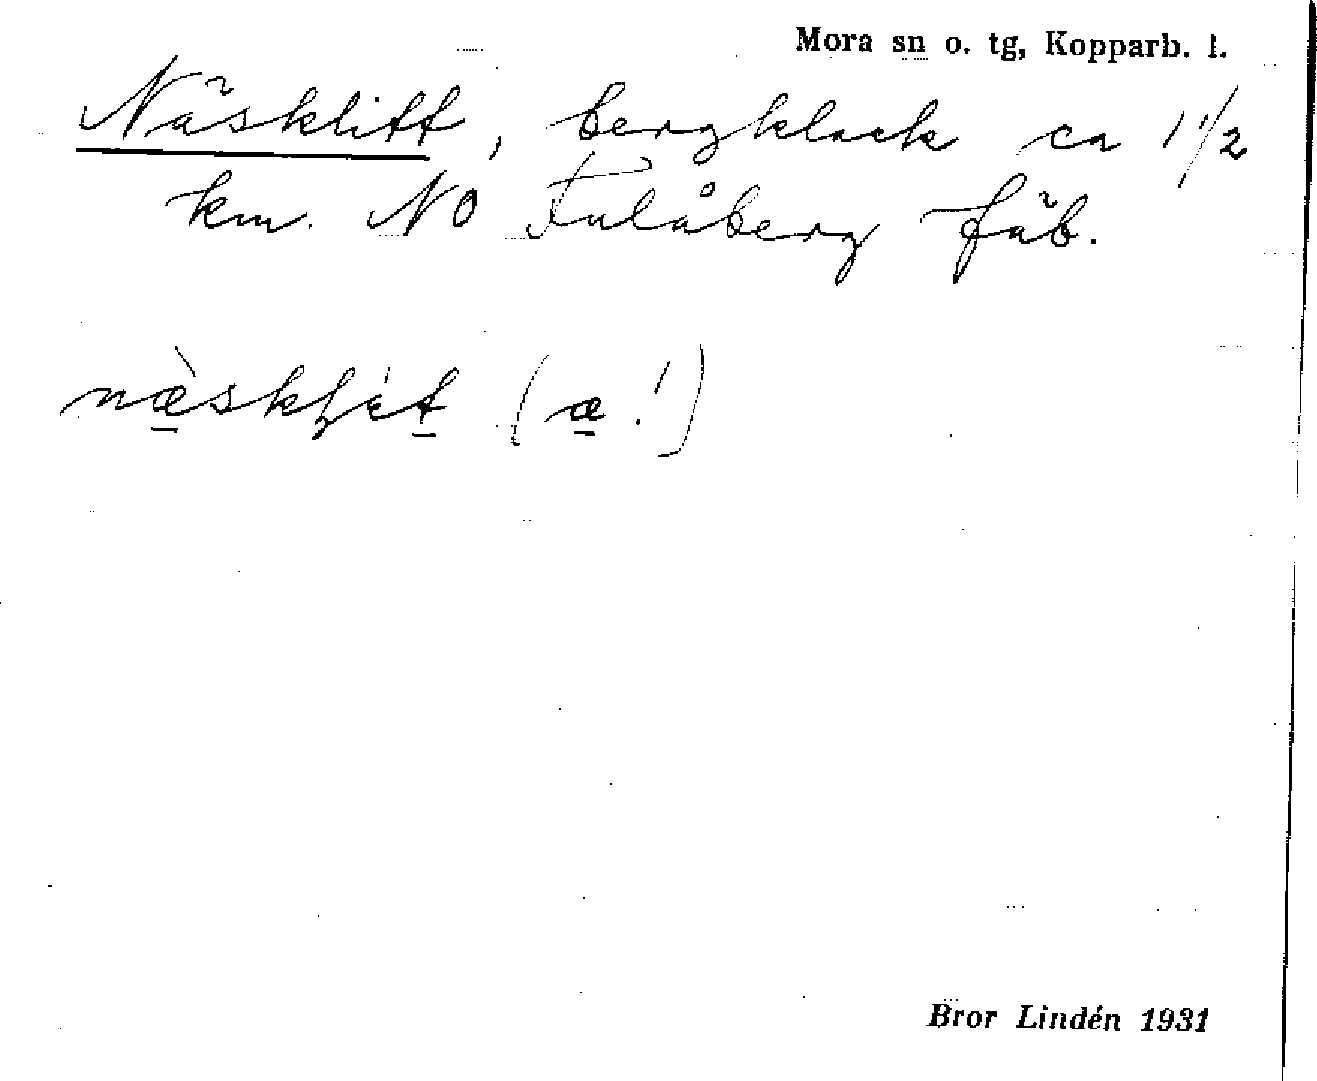 Mora sn o. tg, Kopparb. l.
Näsklitt, bergklack ca 1 1/2
km. NO Fulåberg fäb.
næ̀skḷit (æ!)
Bror Lindén 1931